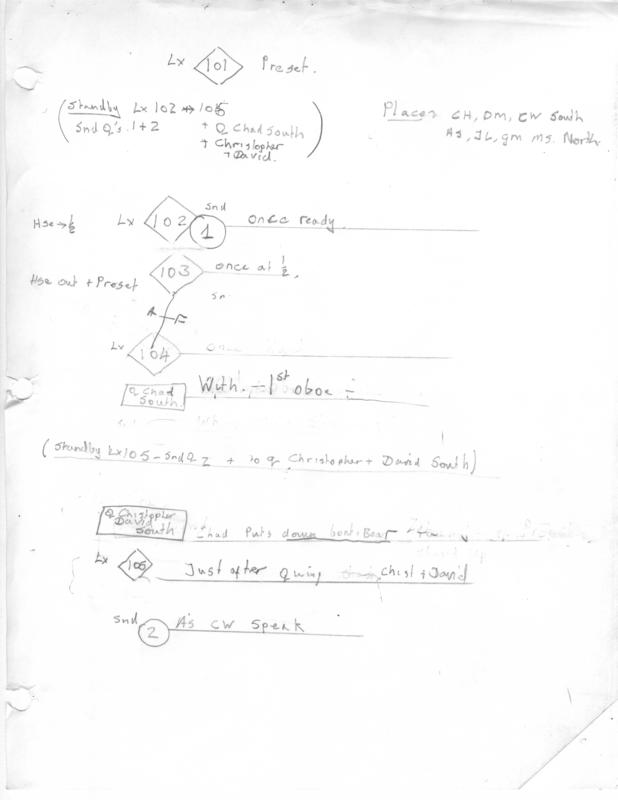 Lx 101 Preset.
(Standby Lx 102 → 105
Snd Q's 1+2 + Q Chad South
+ Christopher
+ David.)
Places CH, DM, CW South
AS, JL, gm ms. North
Hse → ½ Lx 102 Snd 1 once ready
Hse out + Preset 103 once at ½.
Sn
A F
Lx 104
Q Chad South. With 1st oboe
(Standby Lx105 - Snd Q 2 + to q Christopher + David South)
Q Chistopher David South Chad Puts down
Lx 105 Just after Quing Chist + David
Snd 2 As CW Speak